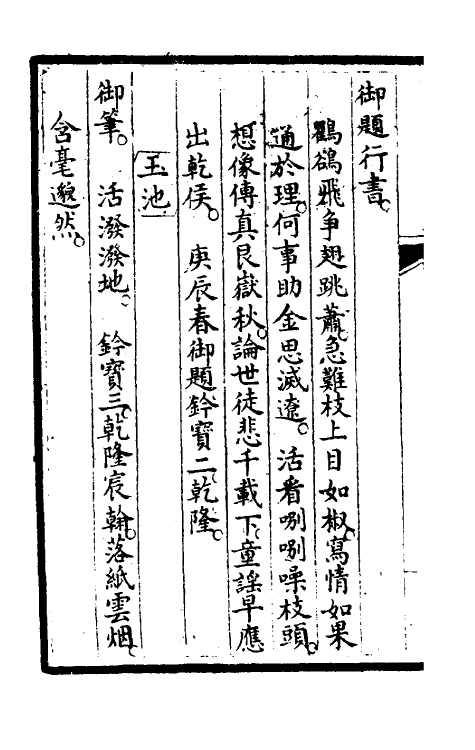 御題行書。
鸜鵒飛争翅跳蕭。急難枝上目如椒。寫情如果
通於理。何事助金思滅遼。 活看咧咧噪枝頭。
想像傳真艮嶽秋。論世徒悲千載下。童謡早應
出乾侯。 庚辰春御題鈐寶二。乾隆。
玉池
御筆。 活潑潑地。 鈐寶三。乾隆宸翰。落紙雲烟。
含毫邈然。